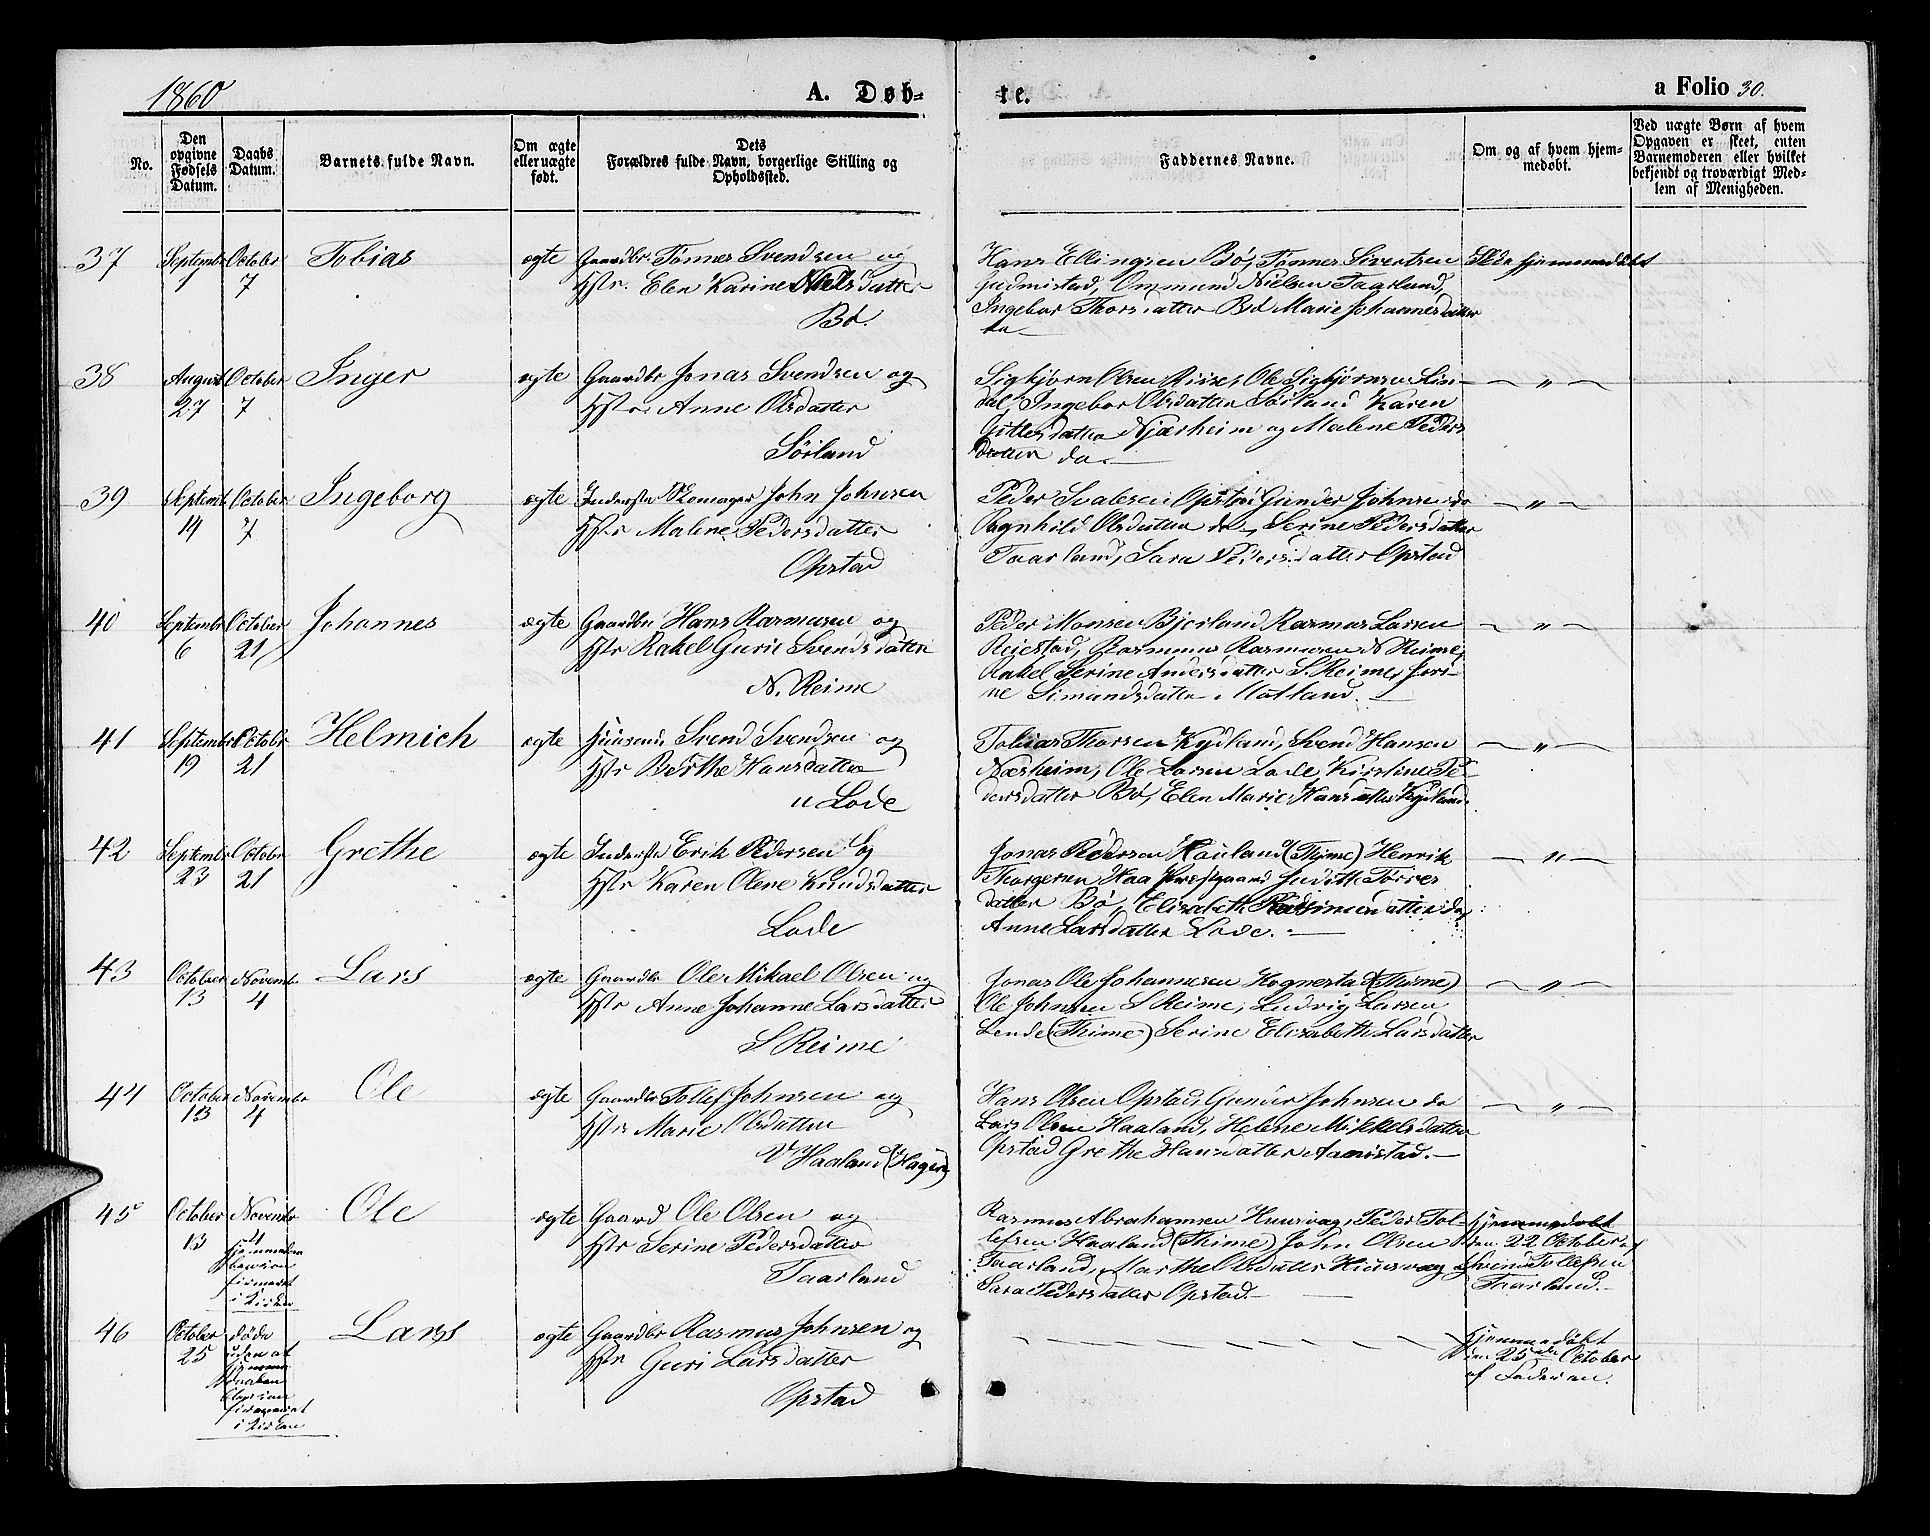 1860
A. Døb-
te.
a Folio 30.
No.
Den
opgivne
Fødsels
Datum.
Daabs
Datum.
Barnets fulde Navn.
Om ægte
eller uægte
født.
Dets
Forældres fulde Navn, borgerlige Stilling og
Opholdssted.
Faddernes Navne.
Om og af hvem hjem-
medøbt.
Ved uægte Børn af hvem
Opgaven er skeet, enten
Barnemoderen eller hvilket
bekjendt og troværdigt Med-
lem af Menigheden.
37 Septembr October Tobias ægte Gaardbr Tønnes Svendsen og
7 Hstr. Elen Karine Nielsdatter
Bø.
Hans Ellingsen Bø, Tønnes Sivertsen
Gudmistad, Ommund Nielsen Taarland,
Ingebor Thorsdatter Bø Marie Johannesdatter
do
Ikke hjemmedøbt
38 August October Inger ægte Gaardbr Jonas Svendsen og
27 7 Hstr. Anne Olsdatter
Søiland
Sigbjørn Olsen Riise, Ole Sigbjørnsen Lin-
dal, Ingebor Olsdatter Søiland Karen
Gittlesdatter Njærheim og Malene Peders
datter do.
— " —
39 Septemb October Ingeborg ægte Inderste Skomager John Johnsen
14 7 Hstr Malene Pedersdatter
Opstad
Peder Svalesen Opstad Gunder Johnsen do
Ragnhild Olsdatter do, Serine Pedersdatter
Taarland, Sara Pedersdatter Opstad
— " —
40 Septembr October Johannes ægte Gaardbr Hans Rasmusen og
6 21 Hstr Rakel Gurie Svendsdatter
N. Reime
Peder Monsen Bjorland Rasmus Larsen
Reiestad, Rasmus Rasmusen N Reime,
Rakel Serine Andersdatter S. Reime, Seri-
ne Simundsdatter Motland.
— " —
41 Septembr Octobr Helmich ægte Huusmd Svend Svendsen og
19 21 Hstr Berthe Hansdatter
u Lode
Tobias Thorsen Kydland, Svend Hansen
Nærheim, Ole Larsen Lode, Kirstine Pe-
dersdatter Bø, Elen Marie Hansdatter Kydland.
— " —
42 Septembr Octobr Grethe ægte Inderste Erik Pedersen og
23 21 Hstr Karen Olene Knudsdatter
Lode
Jonas Pedersen Hauland (Thime) Henrik
Thorgersen Haa Præstgaard Judith Tørres
datter Bø, Elizabeth Rasmusdatter do,
Anne Larsdatter Lode.
— " —
43 October Novembr Lars ægte Gaardbr Ole Mikael Olsen og
13 4 Hstr Anne Johanne Larsdatter
S Reime
Jonas Ole Johannesen Hognestad (Thime)
Ole Johnsen S Reime, Ludvig Larsen
Lende (Thime) Serine Elizabeth Larsdatter
— " —
44 October Novembr Ole ægte Gaardbr Tollef Johnsen og
13 4 Hstr Marie Olsdatter
V Haaland (Hagen)
Hans Olsen Opstad, Gunder Johnsen do
Lars Olsen Haaland, Helene Mikkelsdatter
Opstad Grethe Hansdatter Aanistad.
— " —
45 October Novembr Ole ægte Gaard Ole Olsen og
13 4 Hstr Serine Pedersdatter
Taarland
hjemmedaaben
firmeret
i Kirken
Rasmus Abrahamsen Huusvag, Peder Tol-
lefsen Haaland (Thime) John Olsen
Taarland, Marthe Olsdatter Huusvag og
Sara Pedersdatter Opstad.
Hjemmedøbt
den 22 October af
Svend Tollefsen
Taarland.
46 October døde Lars ægte Gaardbr Rasmus Johnsen og
25 uden at Hstr Guri Larsdatter
Opstad
hjemme
daaben
i Kirken
Hjemmedøbt
den 25de October
af Faderen.